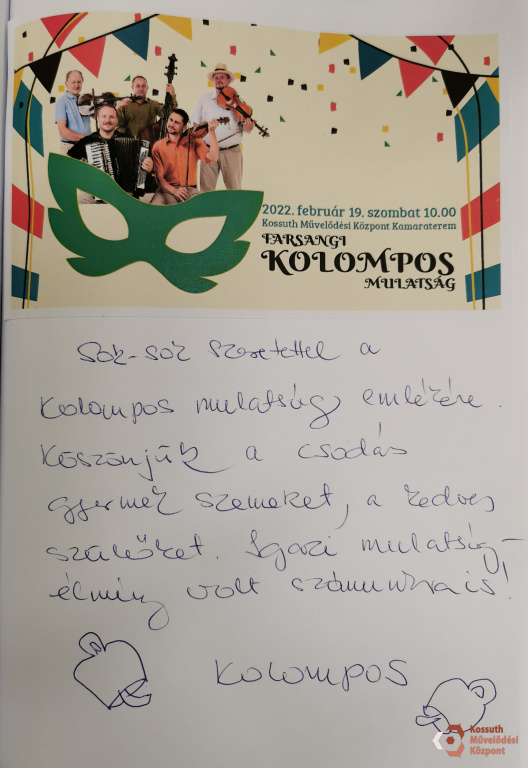 2022. február 19. szombat 10.00
Kossuth Művelődési Központ Kamaraterem
FARSANGI
KOLOMPOS
MULATSÁG
Sok-sok szeretettel a
Kolompos mulatság emlékére.
Köszönjük a csodás
gyermek szemeket, a kedves
szülőket. Igazi mulatság-
élmény volt számunkra is!
KOLOMPOS
Kossuth
Művelődési
Központ